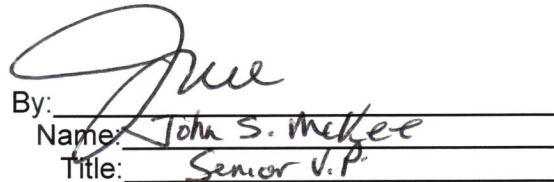 By:
Name: John S. McKee
Title: Senior V.P.